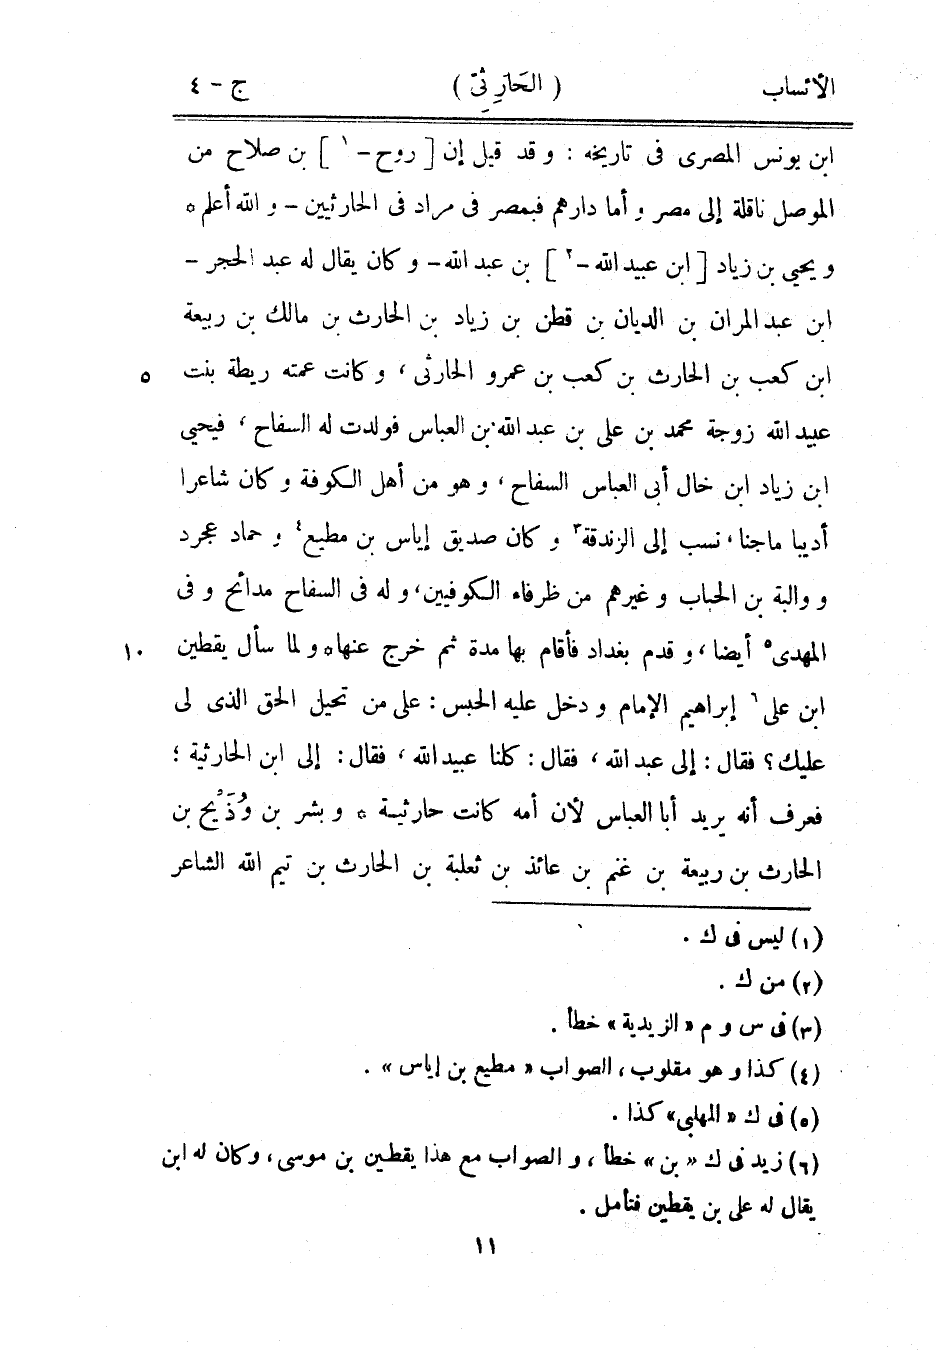 الأنساب ( الحَارِثىّ ) ج - ٤
ابن يونس المصرى فى تاريخه : و قد قيل إن [ روح - ١ ] بن صلاح من
الموصل ناقلة إلى مصر و أما دارهم فبمصر فى مراد فى الحارثيين - و الله أعلم *
و يحيى بن زياد [ ابن عبيد الله - ٢ ] بن عبد الله - و كان يقال له عبد الحجر -
ابن عبد المران بن الديان بن قطن بن زياد بن الحارث بن مالك بن ربيعة
ابن كعب بن الحارث بن كعب بن عمرو الحارثى ، و كانت عمته ريطة بنت ٥
عبيد الله زوجة محمد بن على بن عبد الله بن العباس فولدت له السفاح ، فيحيى
ابن زياد ابن خال أبى العباس السفاح ، و هو من أهل الكوفة و كان شاعرا
أديبا ماجنا ، نسب إلى الزندقة ٣ و كان صديق إياس بن مطيع ٤ و حماد عجرد
و والبة بن الحباب و غيرهم من ظرفاء الكوفيين ، و له فى السفاح مدائح و فى
المهدى ٥ أيضا ، و قدم بغداد فأقام بها مدة ثم خرج عنها * و لما سأل يقطين ١٠
ابن على ٦ إبراهيم الإمام و دخل عليه الحبس : على من تحيل الحق الذى لى
عليك ؟ فقال : إلى عبد الله ، فقال : كلنا عبيد الله ، فقال : إلى ابن الحارثية ؛
فعرف أنه يريد أبا العباس لأن أمه كانت حارثية * و بشر بن وُذَيْح بن
الحارث بن ربيعة بن غنم بن عائذ بن ثعلبة بن الحارث بن تيم الله الشاعر
(١) ليس فى ك .
(٢) من ك .
(٣) فى س و م « الزيدية » خطأ .
(٤) كذا و هو مقلوب ، الصواب « مطيع بن إياس » .
(٥) فى ك « المهلبى » كذا .
(٦) زيد فى ك « بن » خطأ ، و الصواب مع هذا يقطين بن موسى ، وكان له ابن
يقال له على بن يقطين فتأمل .
١١